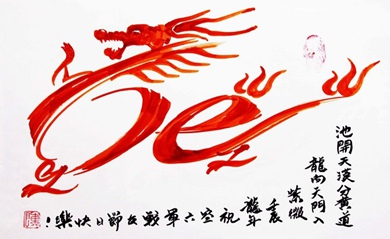 池開天漢分黃道
龍向天門入
紫微
壬辰
龍年
祝空六軍戰友節日快樂！